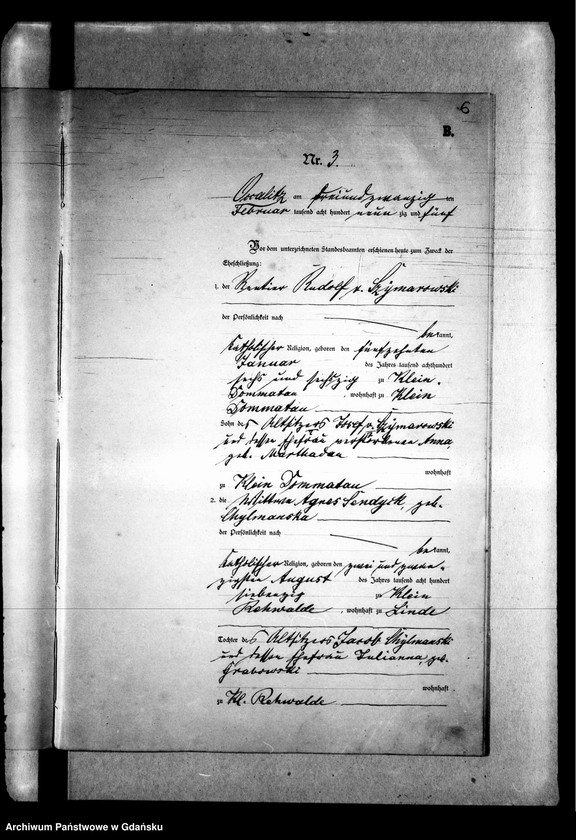 6
B.
Nr. 3.
am dreiundzwanzig ten
Februar tausend acht hundert neun zig und fünf
Vor dem unterzeichneten Standesbeamten erschienen heute zum Zweck der
Eheschließung:
1. der Rentier Rudolf v. Szymarowski
der Persönlichkeit nach
be kannt,
katholischer Religion, geboren den fünfzehnten
Januar des Jahres tausend achthundert
sechs und sechszig zu Klein
Dommatau, wohnhaft zu Klein
Dommatau
Sohn des Altsitzers Josef v. Szymarowski
und dessen Ehefrau verstorbenen Anna,
geb.
wohnhaft
zu Klein Dommatau
2. die Wittwe Agnes Sendyck, geb.
der Persönlichkeit nach
be kannt,
katholischer Religion, geboren den zwei und zwan-
zigsten August des Jahres tausend acht hundert
siebenzig zu Klein
Rehwalde, wohnhaft zu Linde
Tochter des Altsitzers Jacob
und dessen Ehefrau Julianna, geb.
Grabowski
wohnhaft
zu Kl. Rehwalde
Archiwum Państwowe w Gdańsku